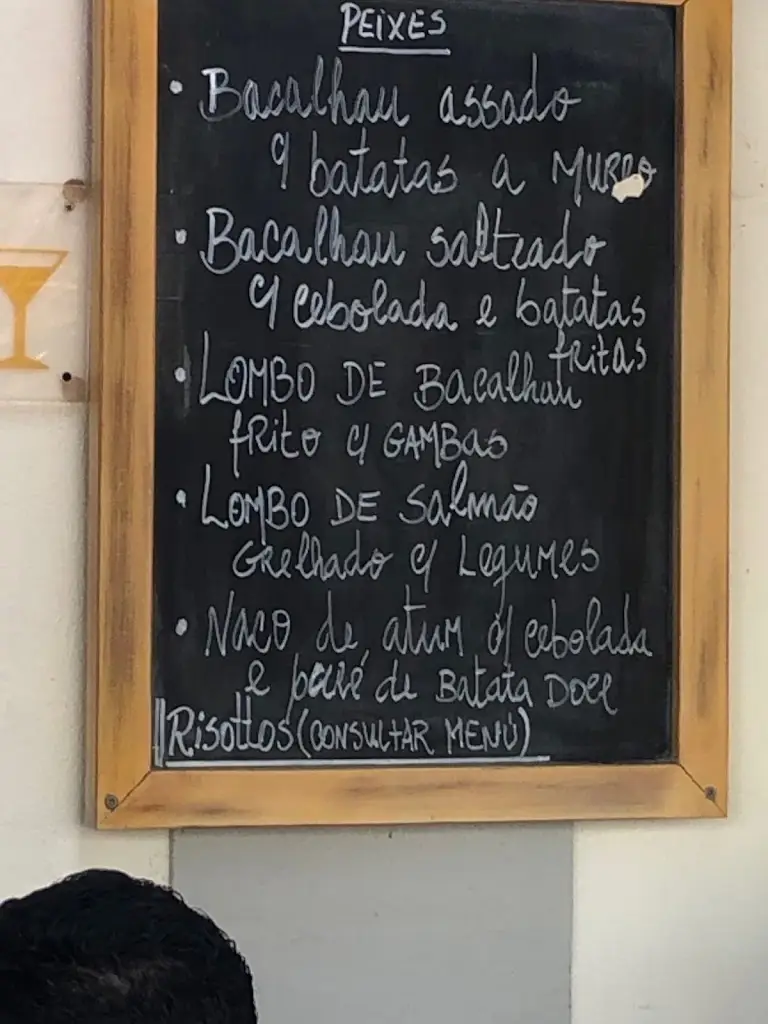 PEIXES
• Bacalhau assado
c/ batatas a MURRO
• Bacalhau salteado
c/ cebolada e batatas
fritas
• LOMBO DE Bacalhau
fRito c/ GAMBAS
• LOMBO DE Salmão
GRelhado c/ LegUMes
• NACO de atUM c/ cebolada
e puré de BATATA DOCE
Risottos (CONSULTAR MENÚ)